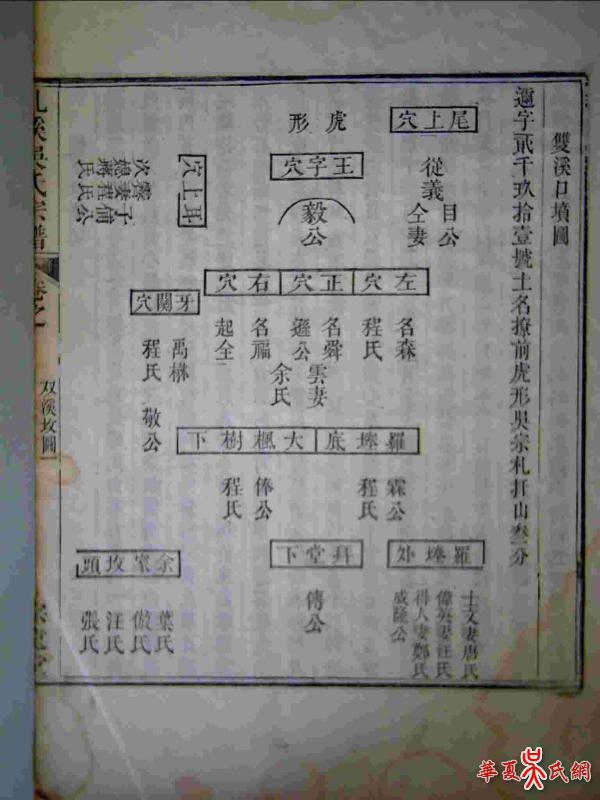 雙溪口墳圖
邇字貳千玖拾壹號土名撩前虎形吳宗札扞山叁分
虎形
尾上穴
從義
公妻
目公
王字穴
毅公
耳上穴
子
程氏公
蔣氏
左穴
名森
程氏
正穴
名舜
遜公
雲妻
余氏
右穴
名福
起全
牙關穴
禹構
程氏
敬公
羅墶底
霖公
程氏
大楓樹下
俸公
程氏
羅墶外
士文妻唐氏
偉英妻汪氏
得人妻鄭氏
咸隆公
拜堂下
傳公
余家坟頭
葉氏
倣氏
汪氏
張氏
溪吳氏宗譜
卷之
双溪坟圖
華夏吳氏網